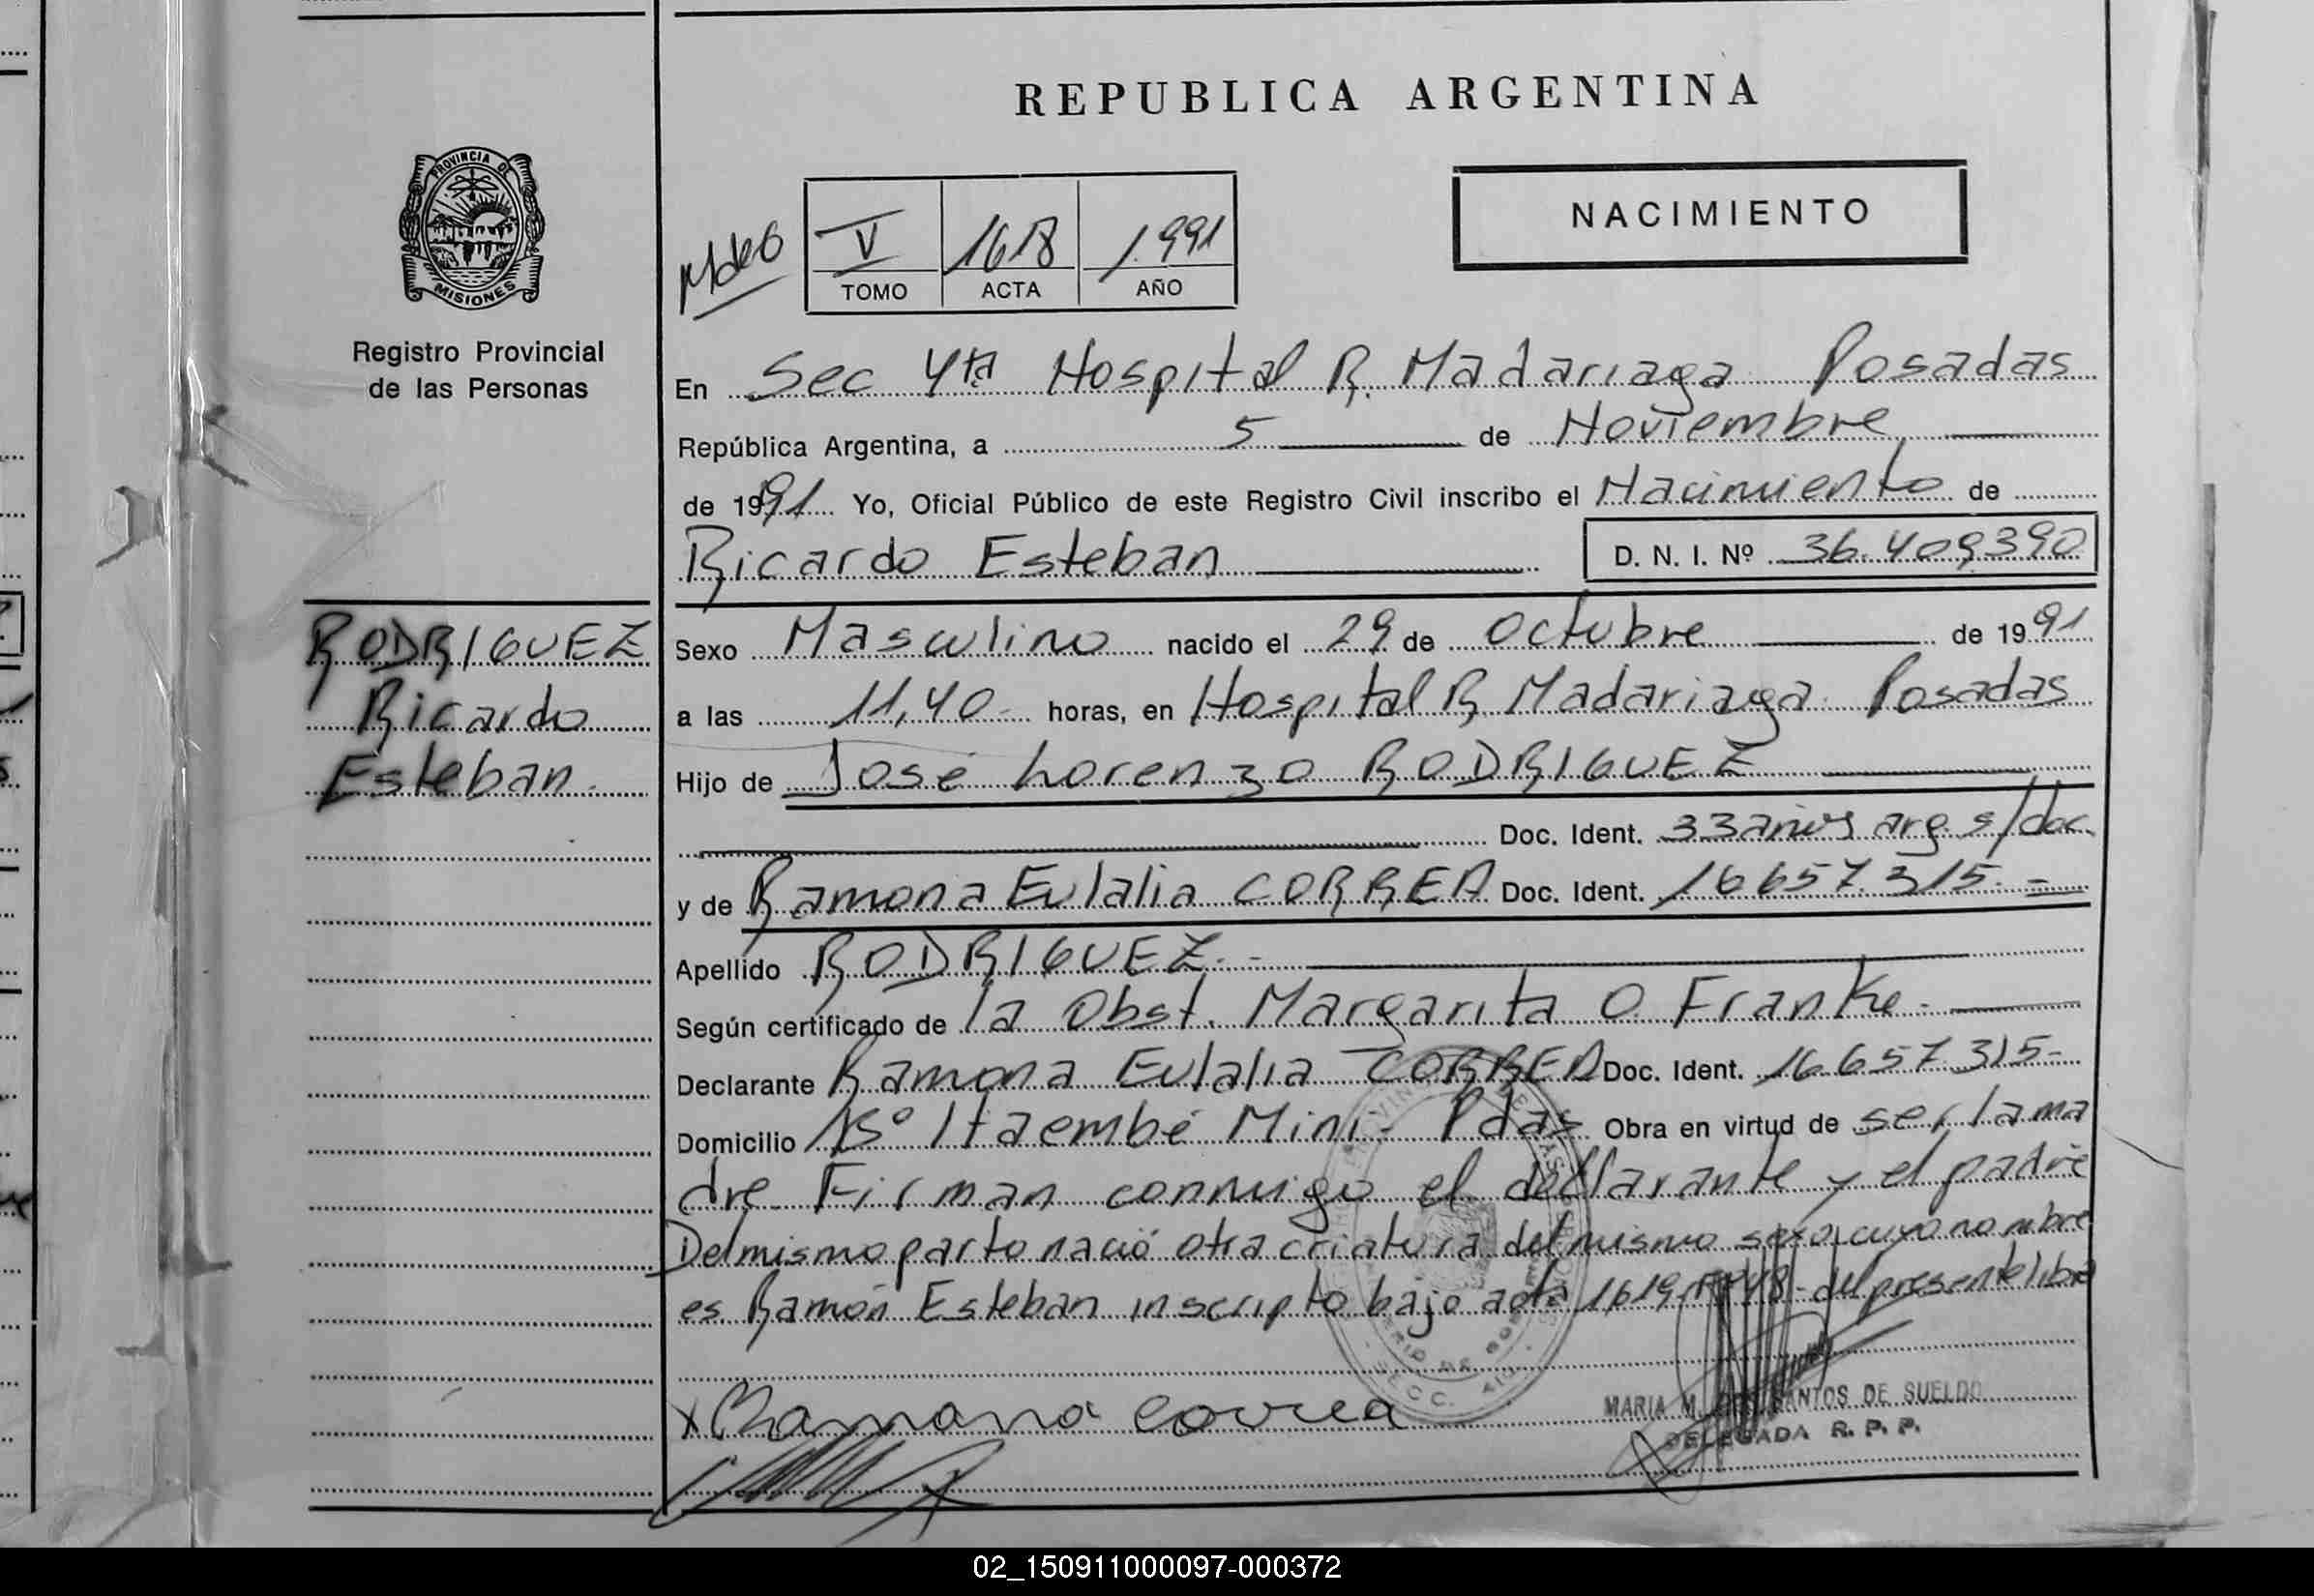 REPUBLICA ARGENTINA
PROVINCIA DE
MISIONES
Registro Provincial
de las Personas
NACIMIENTO
V 1618 1.991
TOMO ACTA AÑO
En Sec 4ta Hospital R. Madariaga Posadas
República Argentina, a 5 de Noviembre
de 1991 Yo, Oficial Público de este Registro Civil inscribo el Nacimiento de
Ricardo Esteban D. N. I. Nº 36.409390
RODRIGUEZ
Ricardo
Esteban.
Sexo Masculino nacido el 29 de Octubre de 1991
a las 11,40 horas, en Hospital R Madariaga Posadas
Hijo de José Lorenzo RODRIGUEZ
Doc. Ident. 33 años arg. s/doc.
y de Ramona Eulalia CORREA Doc. Ident. 16657.315.-
Apellido RODRIGUEZ.-
Según certificado de la Obst. Margarita O. Franke.
Declarante Ramona Eulalia CORREA Doc. Ident. 16.657.315-
Domicilio Bº Itaembé Mini - Pdas Obra en virtud de ser la ma
dre. Firman conmigo el declarante y el padre
Del mismo parto nació otra criatura del mismo sexo, cuyo nombre
es Ramón Esteban inscripto bajo acta 1619, del presente libro
x Ramona Correa
MARIA M. DOS SANTOS DE SUELDO
DELEGADA R. P. P.
02_150911000097-000372